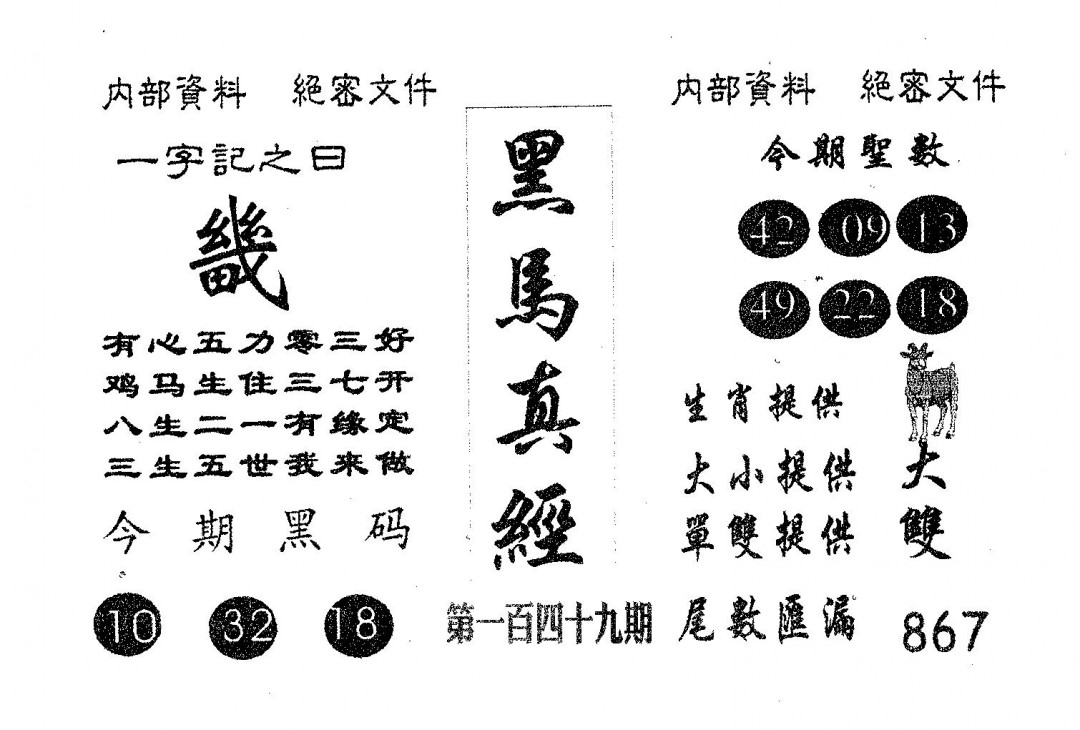 内部資料 絕密文件
一字記之曰
畿
有心五力零三好
鸡马生住三七开
八生二一有缘定
三生五世我来做
今期黑码
10 32 18
黑馬真經
第一百四十九期
内部資料 絕密文件
今期聖數
42 09 13
49 22 18
生肖提供
大小提供 大
單雙提供 雙
尾數匯漏 867